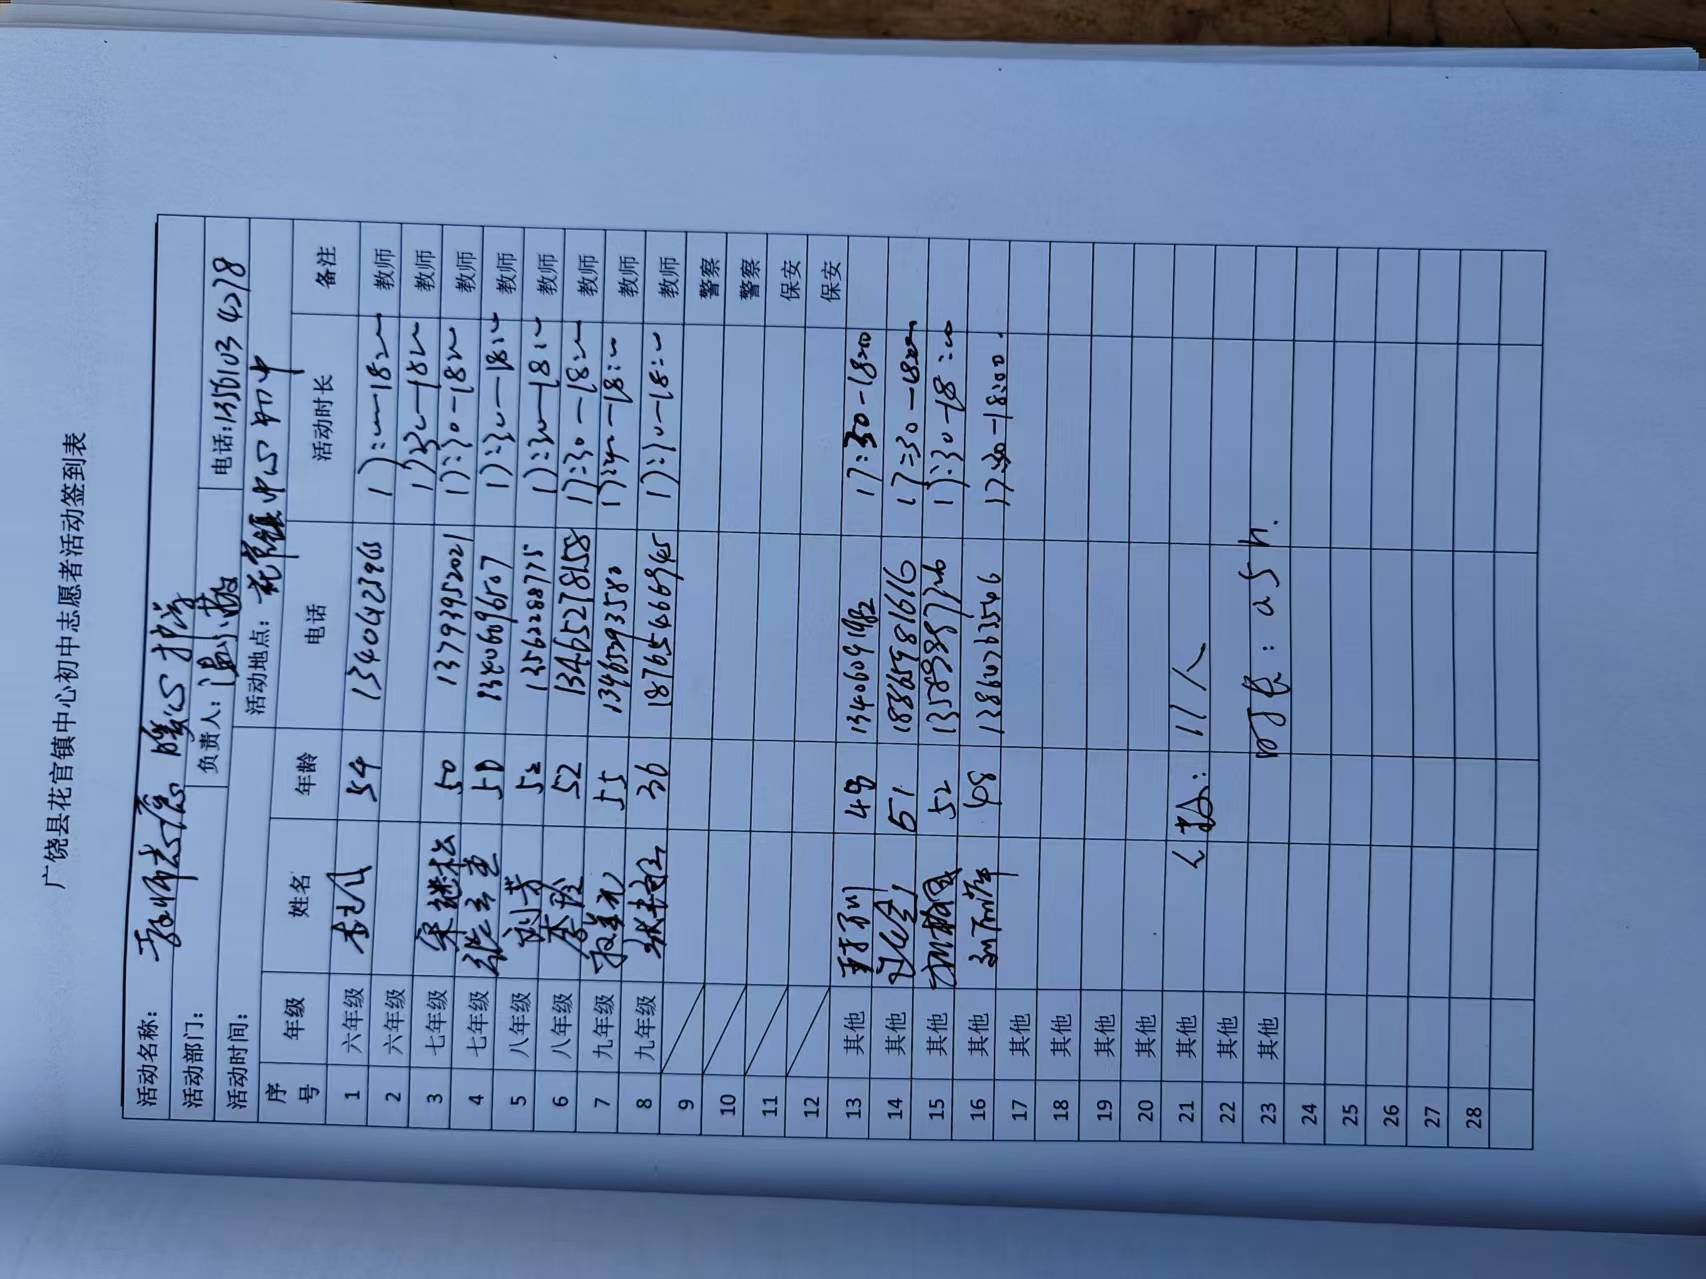 广饶县花官镇中心初中志愿者活动签到表
活动名称： 教师志愿 暖心护学
活动部门： 负责人： 电话：13561034278
活动时间： 活动地点： 花官镇中心初中
序号 年级 姓名 年龄 电话 活动时长 备注
1 六年级 54 13404423965 教师
2 六年级 教师
3 七年级 宋继松 50 13793952021 17:30-18:00 教师
4 七年级 50 13406696507 17:30-18:00 教师
5 八年级 刘芳 52 13562288775 17:30-18:00 教师
6 八年级 李玲 52 13465278158 17:30-18:00 教师
7 九年级 55 13465293580 教师
8 九年级 36 18765466945 17:30-18:00 教师
9 警察
10 警察
11 保安
12 保安
13 其他 17:30-1800
14 其他 51 18865981616 17=30-1800
15 其他 52 17:30-18:00
16 其他 48 17:30-18:00.
17 其他
18 其他
19 其他
20 其他
21 其他 人数：11人
22 其他
23 其他 时长：0.5h.
24
25
26
27
28